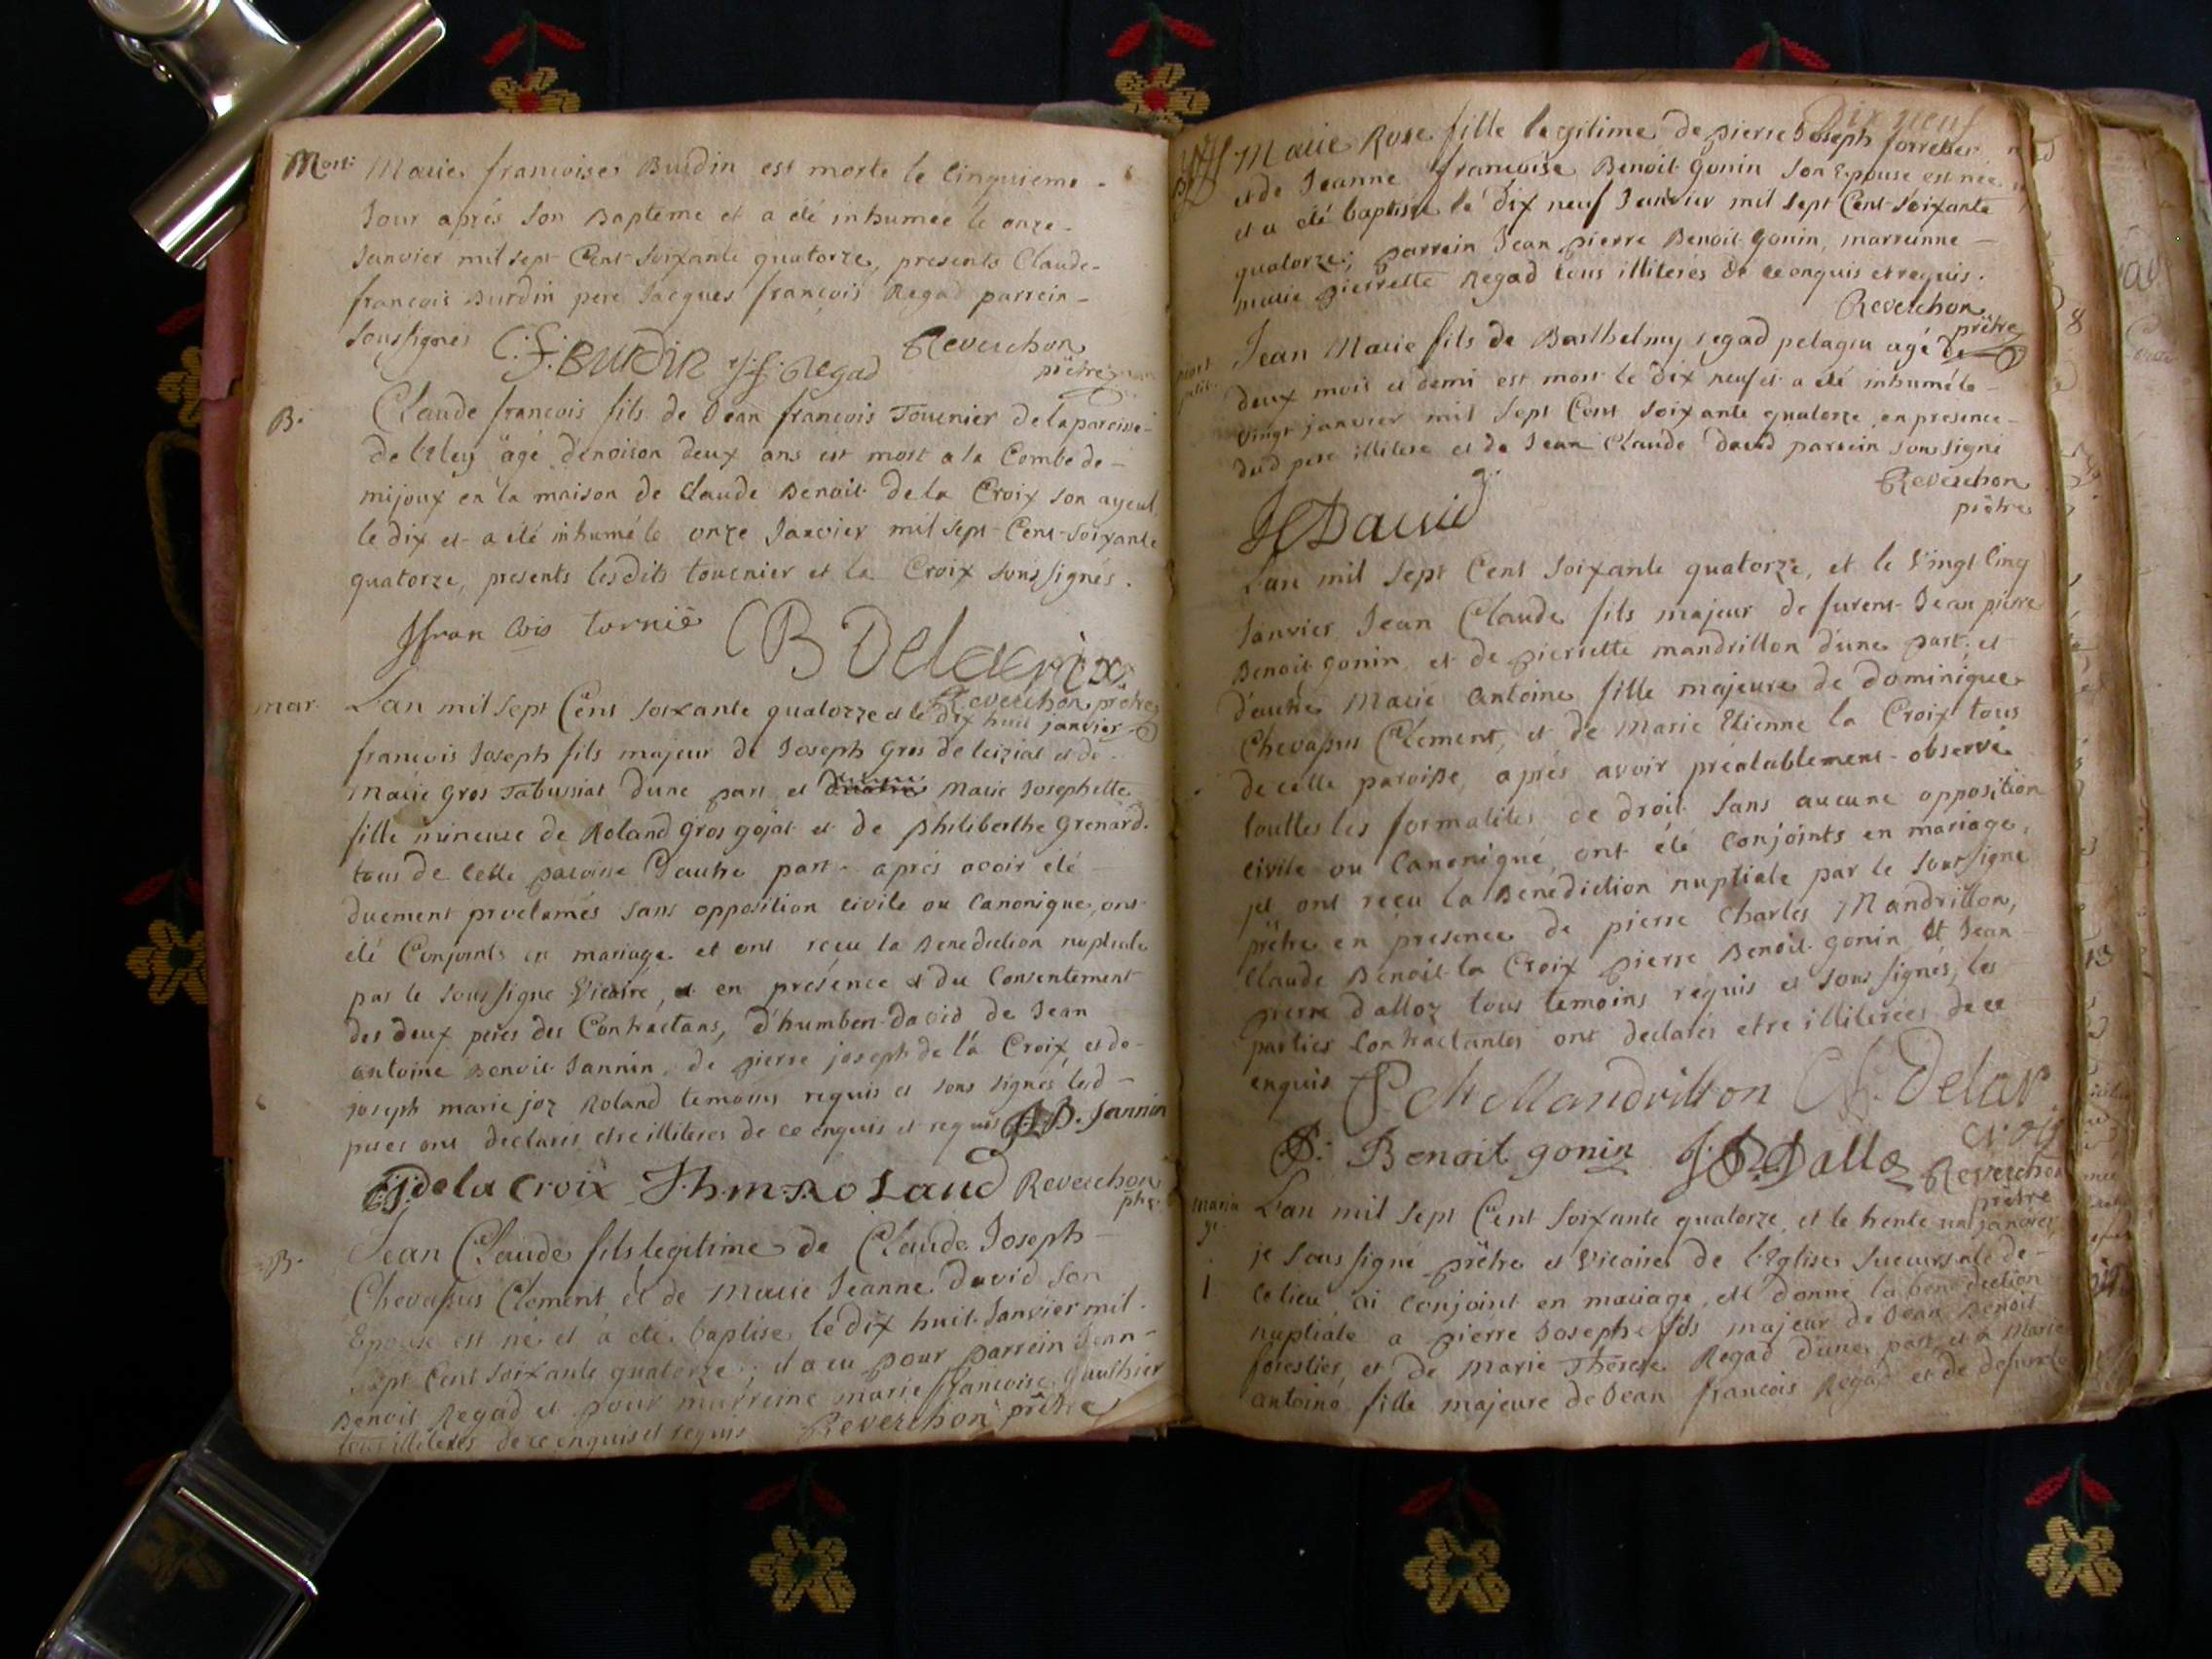 Mort: Marie francoise Burdin est morte le Cinquieme
Jour aprés son Bapteme et a été inhumée le onze
Janvier mil sept Cent soixante quatorze, presents Claude
francois Burdin pere Jacques françois Regad parrein
soussignés C:f:Burdin J:f:Regad Reverchon
prêtre
B. Claude francois fils de Jean francois Tournier de la paroisse
de lelex agé denoison deux ans est mort a la Combe de
mijoux en la maison de Claude Benoit de la Croix son ayeul
le dix et a été inhumé le onze Janvier mil sept Cent soixante
quatorze, presents lesdits tournier et la Croix soussignés.
Jfran Cois tornie CB Delacroix
Reverchon prêtre
mar. Lan mil sept Cent soixante quatorze et le dix huit janvier
francois Joseph fils majeur de Joseph Gros de leiziat et de
Marie Gros Tabussiat dune part et Marie Josephette
fille mineure de Roland Gros gojat et de philiberthe Grenard
tous de Cette paroisse Dautre part aprés avoir été
duement proclamés sans opposition civile ou Canonique, ont
été Conjoints en mariage et ont reçu la Benediction nuptiale
par le soussigne Vicaire, en présence et du Consentement
des deux peres des Contractans, d'humbert David de Jean
antoine Benoit Jannin, de pierre joseph de la Croix et de
joseph marie joz Roland temoins requis et sous signés lesd
peres ont declarés etre illiteres de ce enquis et requis JAB. Jannin
PJ delacroix J.h.m.Roland Reverchon
ptre
B. Jean Claude fils legitime de Claude Joseph
Chevassus Clement et de Marie Jeanne David son
Epouse est né et a été baptisé le dix huit Janvier mil
sept Cent soixante quatorze; il a eu pour parrein Jean
Benoit Regad et pour marreine marie francoise Gauthier
tous illiteres de ce enquis et requis Reverchon prêtre
Dix neuf
Marie Rose fille legitime de pierre Joseph forretier
et de Jeanne francoise Benoit Gonin son Epouse est née
et a été baptisée le dix neuf Janvier mil sept Cent soixante
quatorze; parrein Jean pierre Benoit Gonin, marreinne
marie pierrette Regad tous illiterés de ce enquis et requis.
Reverchon
prêtre
mort
petit. Jean Marie fils de Barthelmy regad pelagru agé de
deux mois et demi est mort le dix neuf et a été inhumé le
vingt janvier mil sept Cent soixante quatorze en presence
dud pere illitere et de Jean Claude David parrein soussigné
Reverchon
prêtre
JC David
Lan mil sept Cent soixante quatorze, et le Vingt Cinq
Janvier Jean Claude fils majeur de furent Jean pierre
Benoit Gonin et de pierrette mandrillon d'une part, et
d'autre Marie Antoine fille majeure de dominique
Chevassus Clement, et de Marie Etienne la Croix tous
de cette paroisse, aprés avoir préalablement observé
touttes les formalités de droit sans aucune opposition
civile ou Canonique ont été Conjoints en mariage,
et ont reçu la Benediction nuptiale par le soussigné
prêtre en presence de pierre Charles Mandrillon,
Claude Benoit la Croix pierre Benoit gonin et Jean
pierre dalloz tous temoins requis et sous signés, les
parties Contractantes ont declarés etre illiterées de ce
enquis P. ch Mandrillon CB. Delacr
P: Benoit gonin J P Dalloz
Reverchon
prêtre
maria
ge. Lan mil sept Cent soixante quatorze, et le trente un janvier
je soussigné prêtre et Vicaire de l'Eglise succursale de
Ce lieu, ai conjoint en mariage, et donné la benediction
nuptiale a pierre Joseph fils majeur de Jean Benoit
forestier, et de Marie Therese Regad d'une part, et a Marie
antoine fille majeure de Jean francois Regad et de defunte